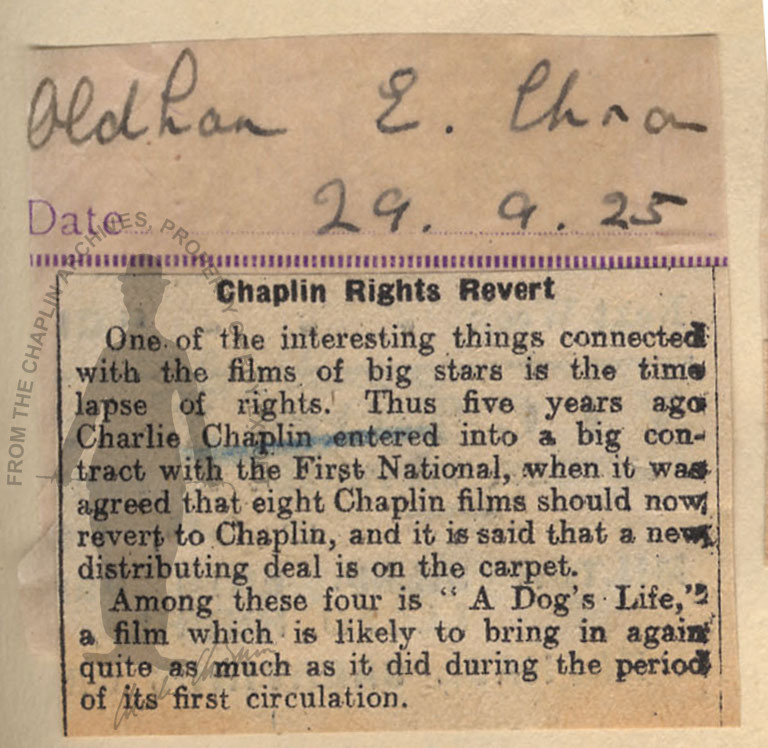 Oldham E. Chron
Date 29. 9. 25
FROM THE CHAPLIN ARCHIVES, PROPERTY
Chaplin Rights Revert
One of the interesting things connected
with the films of big stars is the time
lapse of rights. Thus five years ago
Charlie Chaplin entered into a big con-
tract with the First National, when it was
agreed that eight Chaplin films should now
revert to Chaplin, and it is said that a new
distributing deal is on the carpet.
Among these four is "A Dog's Life,"
a film which is likely to bring in again
quite as much as it did during the period
of its first circulation.